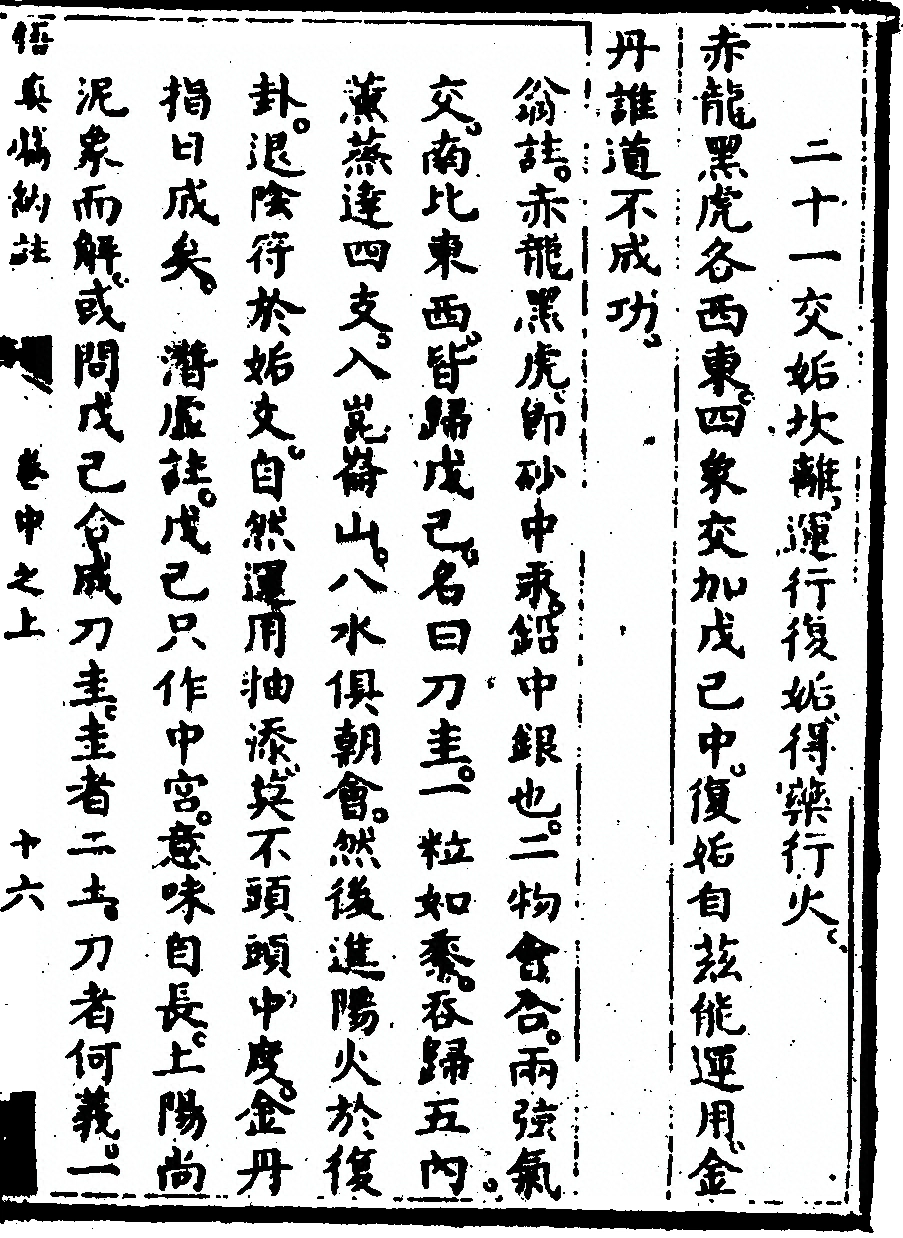 二十一交姤坎離。運行復姤。得藥行火。
赤龍黑虎各西東。四象交加戊己中。復姤自茲能運用。金
丹誰道不成功。
翁註。赤龍黑虎。即砂中汞。鉛中銀也。二物會合。兩弦氣
交。南北東西。皆歸戊己。名曰刀圭。一粒如黍。吞歸五內。
薰蒸達四支。入崑崙山。八水俱朝會。然後進陽火於復
卦。退陰符於姤爻。自然運用抽添。莫不頭頭中度。金丹
指日成矣。 潛虛註。戊己只作中宮。意味自長。上陽尚
泥象而解。或問戊己合成刀圭。圭者二土。刀者何義。一
悟真 約註 卷中之上 十六